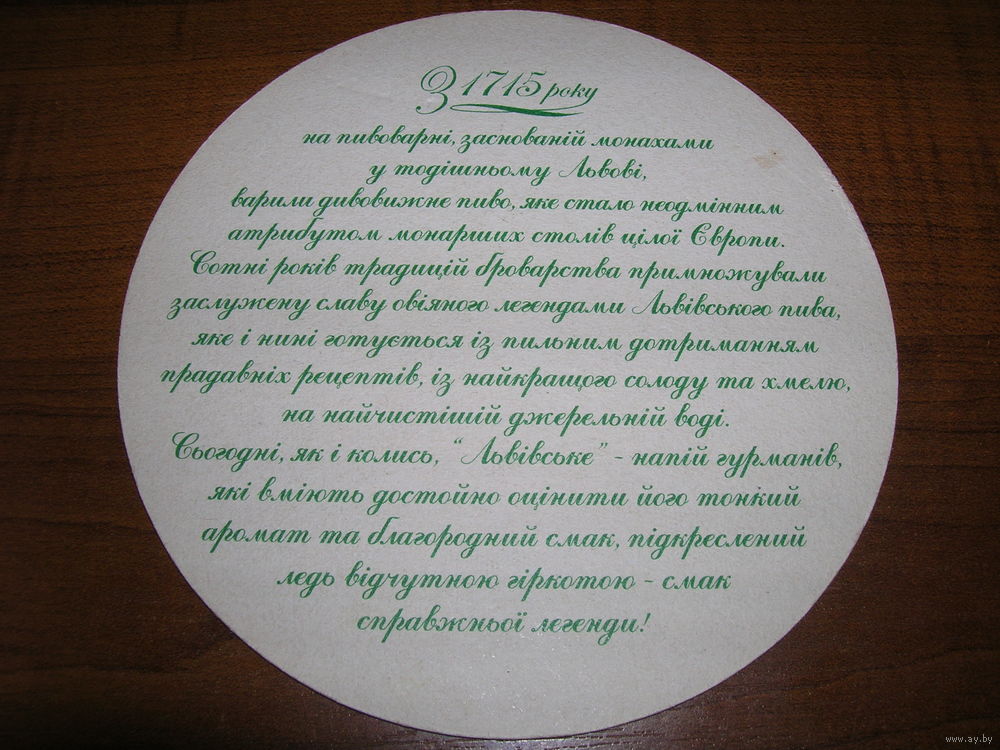 З 1715 року
на пивоварні, заснованій монахами
у тодішньому Львові,
варили дивовижне пиво, яке стало неодмінним
атрибутом монарших столів цілої Європи.
Сотні років традицій броварства примножували
заслужену славу овіяного легендами Львівського пива,
яке і нині готується із пильним дотриманням
прадавніх рецептів, із найкращого солоду та хмелю,
на найчистішій джерельній воді.
Сьогодні, як і колись, “Львівське” - напій гурманів,
які вміють достойно оцінити його тонкий
аромат та благородний смак, підкреслений
ледь відчутною гіркотою - смак
справжньої легенди!
www.ay.by